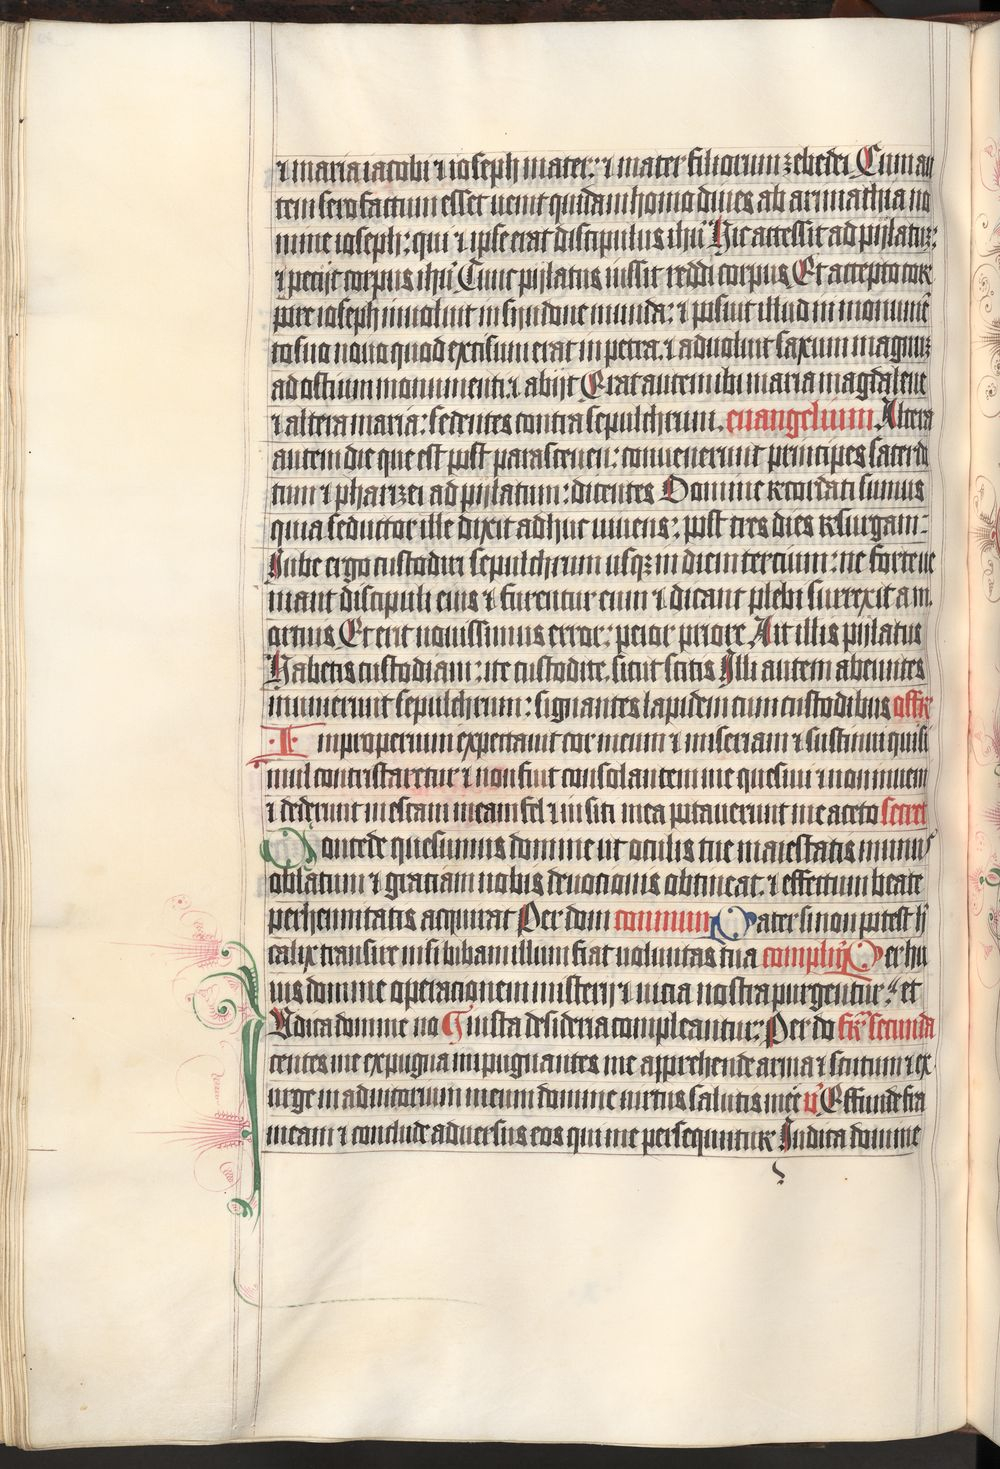 ⁊ maria iacobi ⁊ ioseph mater: ⁊ mater filiorum zebedei Cum au
tem sero factum esset uenit quidam homo diues ab arimathia no
mine ioseph: qui ⁊ ipse erat discipulus ihũ Hic accessit ad pijlatuz:
⁊ pecijt corpus ihũ Tunc pijlatus iussit reddi corpus Et accepto cor
pore ioseph inuoluit in syndone munda: ⁊ posuit illud in monumẽ
to suo nouo quod excisum erat in petra. ⁊ aduoluit saxum magnuz
ad ostium monumenti. ⁊ abijt Erat autem ibi maria magdalene
⁊ altera maria: sedentes contra sepulchrum. euangelium Altera
autem die que est post parasceuen: conuenerunt principes sacerdo
tum ⁊ pharizei ad pijlatum: dicentes Domine recordati sumus
quia seductor ille dixit adhuc uiuens: post tres dies resurgam:
Iube ergo custodiri sepulchrum usqz in diem tercium: ne forte ue
niant discipuli eius ⁊ furentur eum ⁊ dicant plebi surrexit a m
ortuis Et erit nouissimus error: peior priore Ait illis pijlatus
Habetis custodiam: ite custodite. sicut scitis Illi autem abeuntes
munierunt sepulchrum: signantes lapidem cum custodibus offer
Improperium expectauit cor meum ⁊ miseriam ⁊ sustinui qui si
mul contristaretur ⁊ non fuit consolantem me quesiui ⁊ non inueni
⁊ dederunt in escam meam fel ⁊ in siti mea potauerunt me aceto secret
Concede quesumus domine ut oculis tue maiestatis munus
oblatum ⁊ graciam nobis deuotionis obtineat. ⁊ effectum beate
perhennitatis acquirat Per dom commun Pater si non potest hĩ
calix transire nisi bibam illum fiat uoluntas tua complẽ Per hu
ius domine operacionem misterij ⁊ uicia nostra purgentur. et
Iudica domine no iusta desideria compleantur: Per do fer secunda
centes me expugna impugnantes me apprehende arma ⁊ scutum ⁊ ex
urge in adiutorium meum domine uirtus salutis mee v̉ Effunde fra
meam ⁊ conclude aduersus eos qui me persequuntur Iudica domine